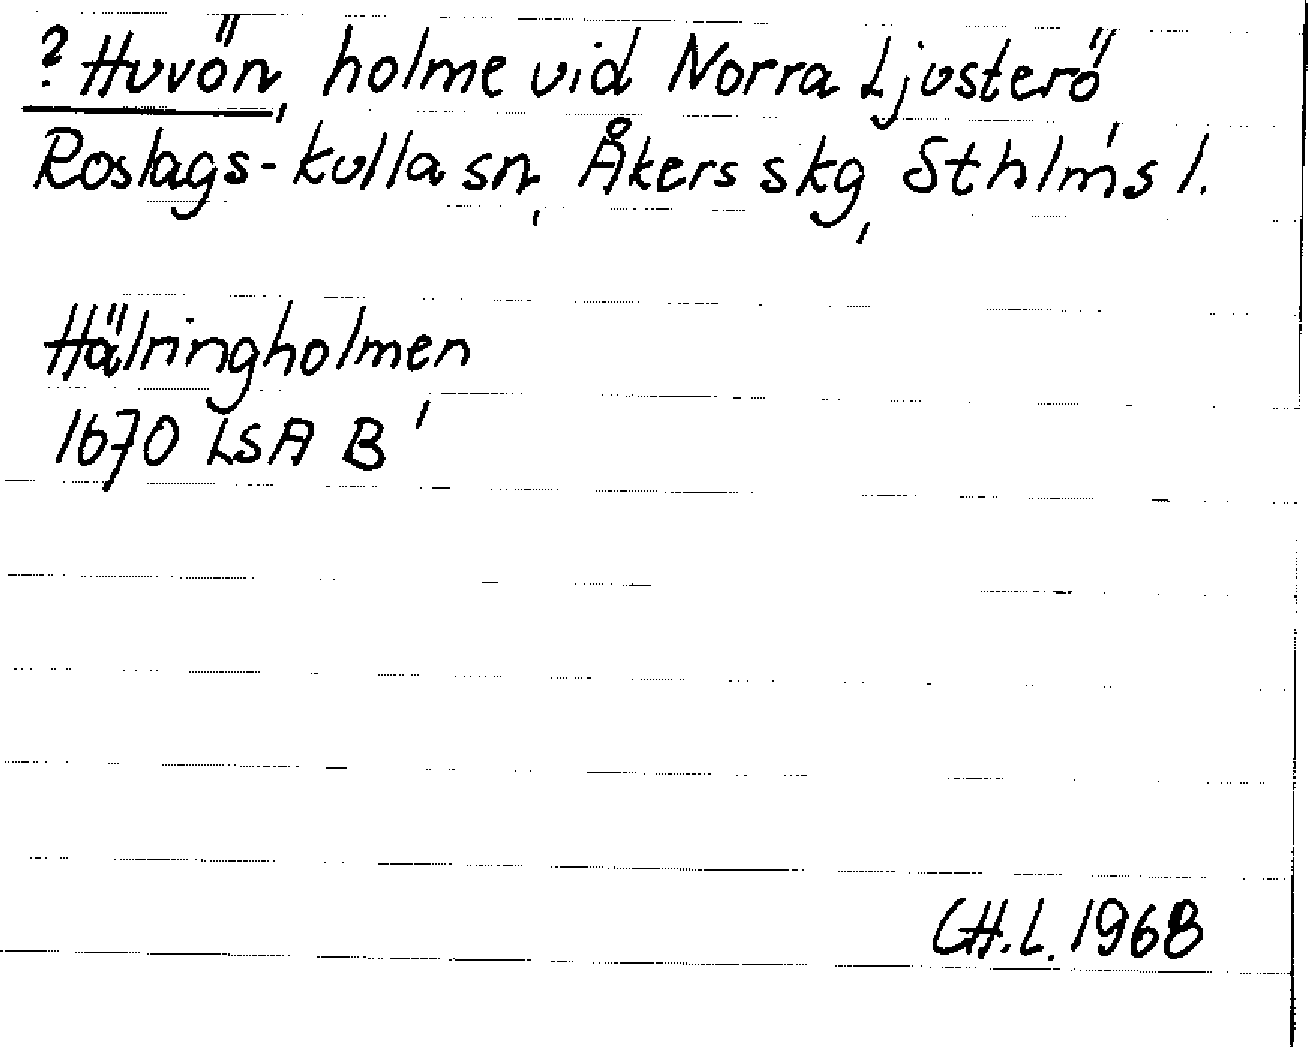 ? Huvön, holme vid Norra Ljusterö,
Roslags-Kulla sn, Åkers skg, Sthlms l.
Hälningholmen
1670 LSA B'
CH.L. 1968